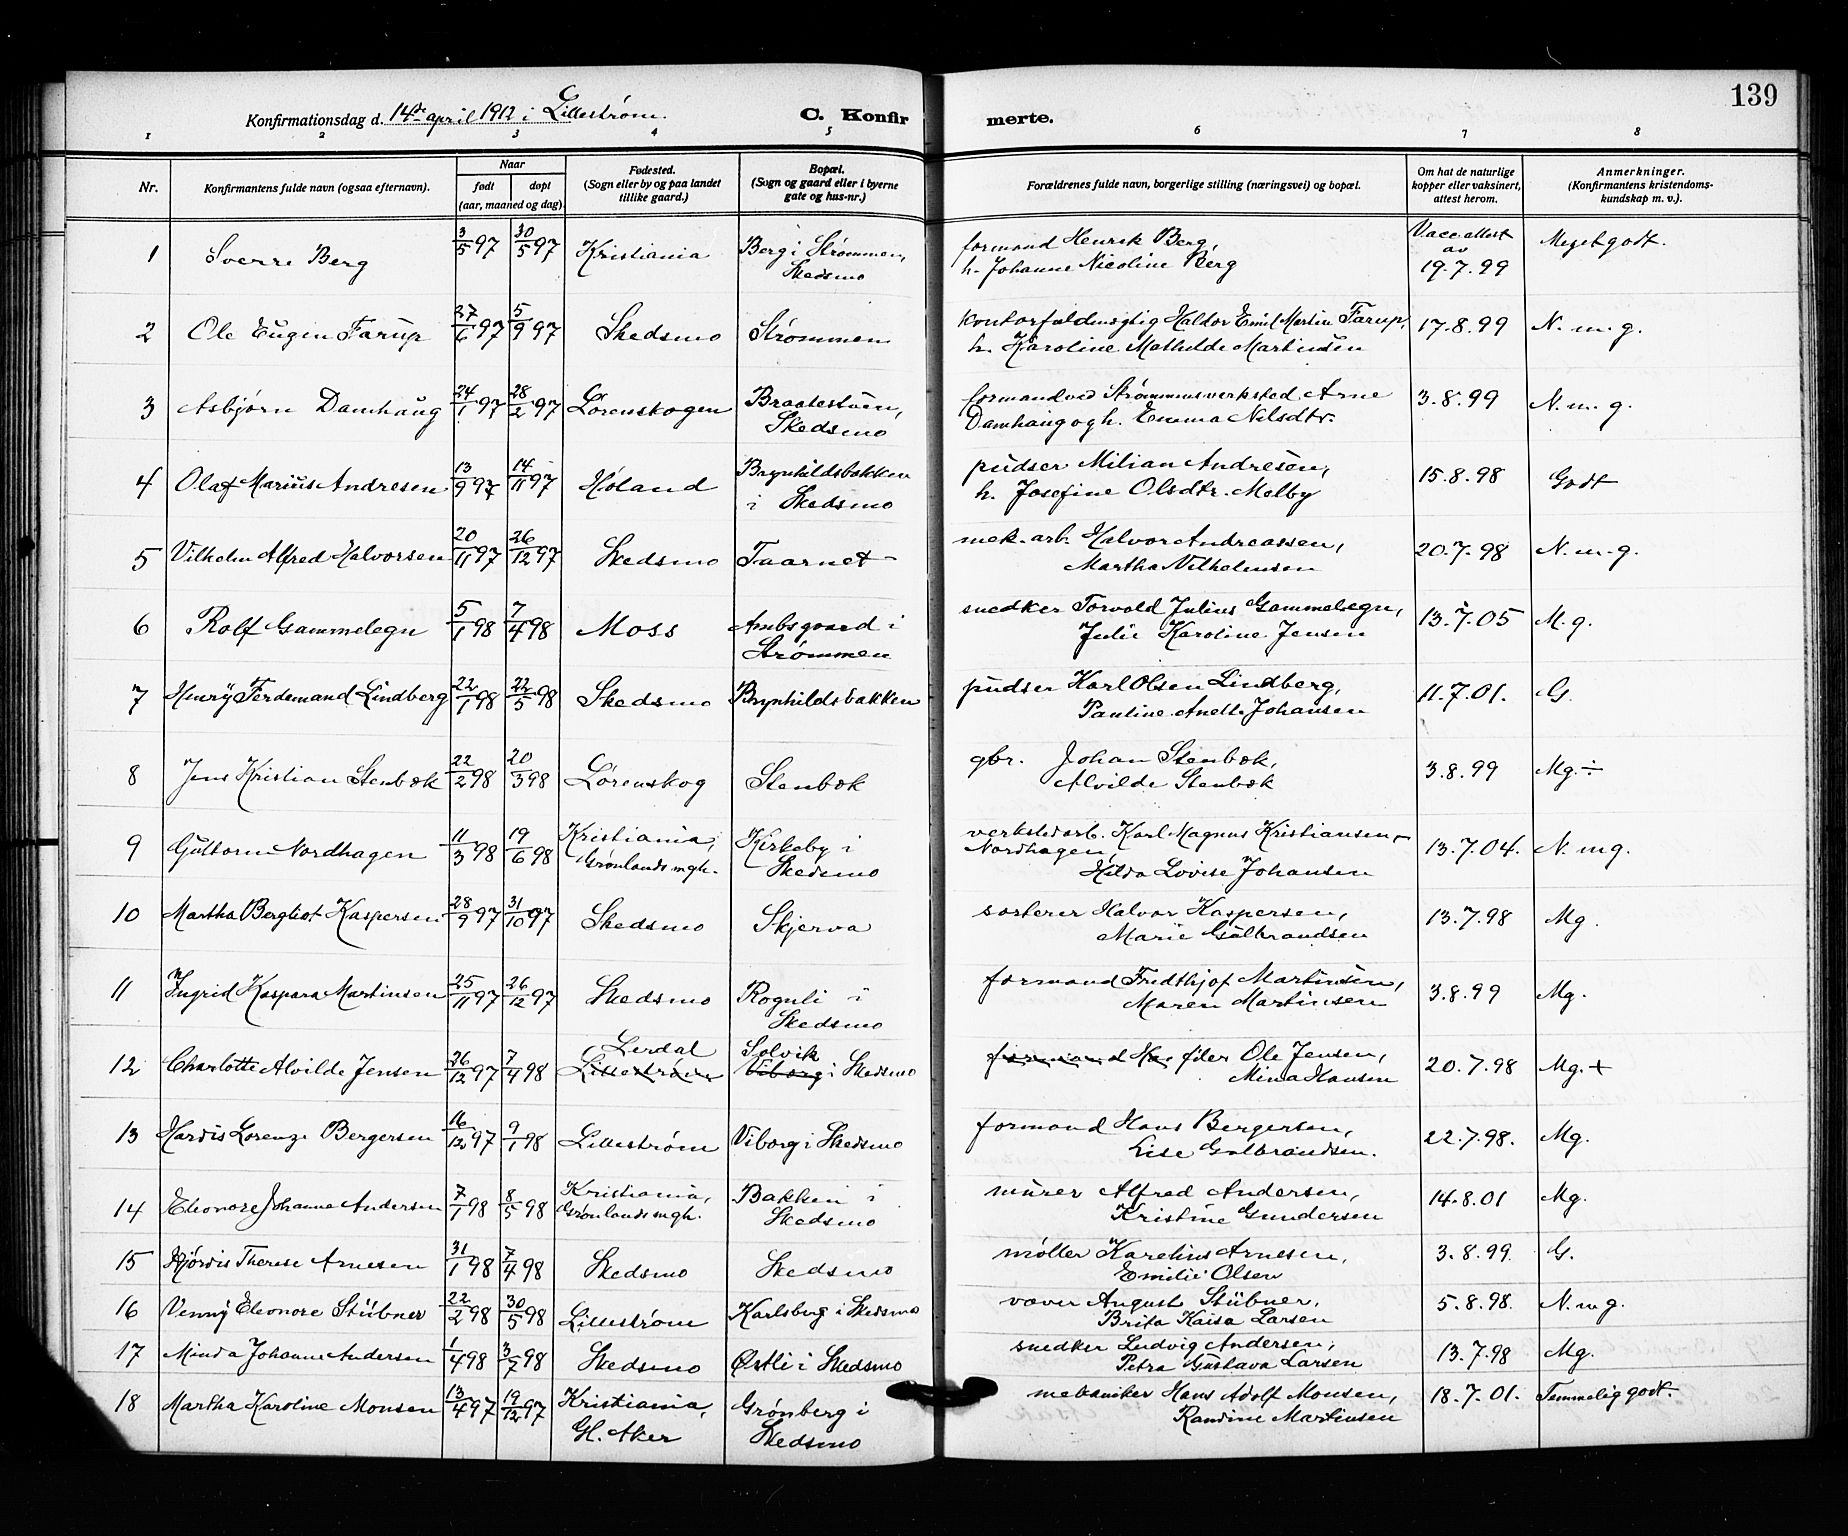 139
Konfirmationsdag d. 14de april 1912 i Lillestrøm.
C. Konfirmerte.
1 2 3 4 5 6 7 8
Nr.
Konfirmantens fulde navn (ogsaa efternavn).
Naar
født døpt
(aar, maaned og dag).
Fødested.
(Sogn eller by og paa landet
tillike gaard.)
Bopæl.
(Sogn og gaard eller i byerne
gate og hus-nr.)
Forældrenes fulde navn, borgerlige stilling (næringsvei) og bopæl.
Om hat de naturlige
kopper eller vaksinert,
attest herom.
Anmerkninger.
(Konfirmantens kristendoms-
kundskap m. v.).
1 Sverre Berg 3/5 97 30/5 97 Kristiania Berg i Strømmen, Skedsmo formand Henrik Berg, h. Johanne Nicoline Berg Vacc. attest av 19.7.99 Meget godt.
2 Ole Eugen Farup 27/6 97 5/9 97 Skedsmo Strømmen kontorfuldmægtig Haldor Emil Martin Farup, h. Karoline Mathilde Martinsen 17.8.99 N. m. g.
3 Asbjørn Damhaug 24/1 97 28/2 97 Lørenskogen Braatestuen, Skedsmo formand ved Strømmens verksted Arne Damhaug og h. Emma Nilsdtr. 3.8.99 N. m. g.
4 Olaf Marius Andresen 13/9 97 14/11 97 Høland Brynhildsbakken i Skedsmo pudser Milian Andresen, h. Josefine Olsdtr. Melby 15.8.98 Godt
5 Vilhelm Alfred Halvorsen 20/11 97 26/12 97 Skedsmo Taarnet mek. arb. Halvor Andreassen, Martha Vilhelmsen 20.7.98 N. m. g.
6 Rolf Gammelegn 5/1 98 7/4 98 Moss Ambsgaard i Strømmen snedker Torvald Julius Gammelegn, Julie Karoline Jensen 13.7.05 M. g.
7 Henry Ferdemand Lindberg 22/1 98 22/5 98 Skedsmo Brynhildsbakken pudser Karl Olsen Lindberg, Pauline Anette Johansen 11.7.01. G.
8 Jens Kristian Stenbæk 22/2 98 20/3 98 Lørenskog Stenbæk gbr. Johan Stenbæk, Alvilde Stenbæk 3.8.99 Mg. ÷
9 Guttorm Nordhagen 11/3 98 19/6 98 Kristiania, Grønlands mgh. Kirkeby i Skedsmo verkstedarb. Karl Magnus Kristiansen- Nordhagen, Hilda Lovise Johansen 13.7.04. N. mg.
10 Martha Bergliot Kaspersen 28/9 97 31/10 97 Skedsmo Skjerva sorterer Halvor Kaspersen, Marie Gulbrandsen 13.7.98 Mg.
11 Ingrid Kaspara Martinsen 25/11 97 26/12 97 Skedsmo Rognli i Skedsmo formand Fridthjof Martinsen, Maren Martinsen 3.8.99 Mg.
12 Charlotte Alvilde Jensen 26/12 97 7/4 98 Lerdal Lillestrøm Solvik Viborg i Skedsmo formand Han filer Ole Jensen, Mina Hansen 20.7.98 Mg. +
13 Hardis Lorenze Bergersen 16/12 97 9/1 98 Lillestrøm Viborg i Skedsmo formand Hans Bergersen, Lise Gulbrandsen. 22.7.98. Mg.
14 Eleonore Johanne Andersen 7/1 98 8/5 98 Kristiania, Grønlands mgh. Bakken i Skedsmo murer Alfred Andersen, Kristine Gundersen 14.8.01 Mg.
15 Hjørdis Therese Arnesen 31/1 98 7/4 98 Skedsmo Skedsmo møller Karelius Arnesen, Emilie Olsen 3.8.99. G.
16 Venny Eleonore Stübner 22/2 98 30/5 98 Lillestrøm Karlsberg i Skedsmo væver August Stübner, Brita Kaisa Larsen 5.8.98. N. m g.
17 Minda Johanne Andersen 1/4 98 3/7 98 Skedsmo Østli i Skedsmo snedker Ludvig Andersen, Petra Gustava Larsen 13.7.98 Mg.
18 Martha Karoline Monsen 13/4 97 19/12 97 Kristiania, Gl. Aker Grønberg i Skedsmo mekaniker Hans Adolf Monsen, Randine Martinsen 18.7.01. Temmelig godt.